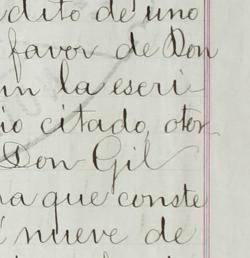 dito de uno
favor de Don
un la escri
io citado, otor
Don Gil
na que conste
nueve de